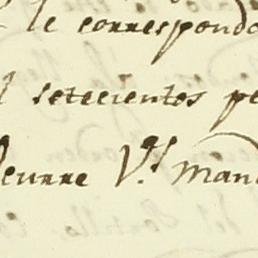 le correspond
setecientos pe
V.s man